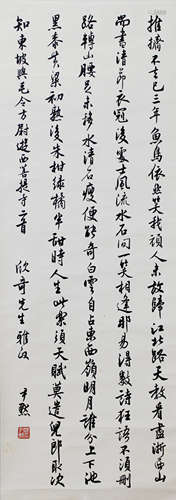 推擠不去已三年魚鳥依然笑我頑人未放歸江北路天教看盡浙西山
尚書清節衣冠後處士風流水石間一笑相逢那易得數詩狂語不須刪
路轉山腰足未移水清石瘦便能奇白雲自占東西嶺明月誰分上下池
黑黍黃粱初熟後朱柑綠橘半甜時人生此樂須天賦莫遣兒郎取次
知東坡與毛令方尉遊西菩提寺二首 欣奇先生雅
尹默